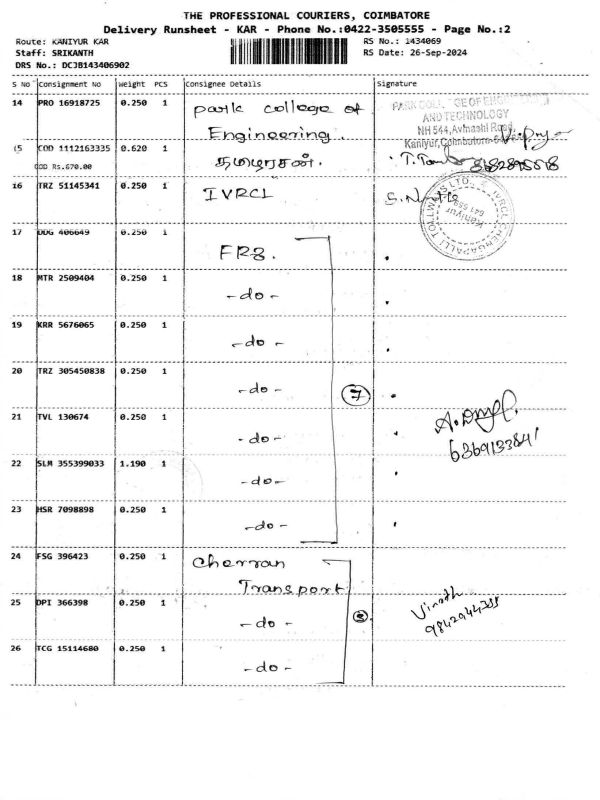 THE PROFESSIONAL COURIERS, COIMBATORE
Delivery Runsheet - KAR - Phone No.:0422-3505555 - Page No.:2
Route: KANIYUR KAR
Staff: SRIKANTH
DRS No.: DCJB143406902
RS No.: 1434069
RS Date: 26-Sep-2024
S No Consignment No Weight PCS Consignee Details Signature
14 PRO 16918725 0.250 1 Park college of
Engineering.
PARK COLLEGE OF ENGINEERING
AND TECHNOLOGY
NH 544, Avinashi Road,
Kaniyur, Coimbatore
15 COD 1112163335 0.620 1 தமிழரசன்.
COD Rs.670.00
16 TRZ 51145341 0.250 1 IVRCL
IVRCL CHENGAPALLI TOLLWAYS LTD.
Kaniyur
641 659
17 DDG 406649 0.250 1 FRS.
18 MTR 2509404 0.250 1 -do-
19 KRR 5676065 0.250 1 -do-
20 TRZ 305450838 0.250 1 -do-
7
21 TVL 130674 0.250 1 -do-
6369133841
22 SLM 355399033 1.190 1 -do-
23 HSR 7098898 0.250 1 -do-
24 FSG 396423 0.250 1 Cherran
Transport
25 DPI 366398 0.250 1 -do-
3
Vinoth
26 TCG 15114680 0.250 1 -do-